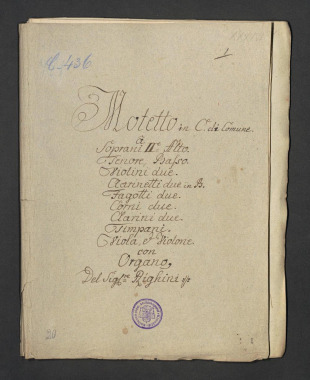 C-436.
1
Motetto in C. di Comune.
a
Soprani II. Alto.
Tenore, Basso.
Violini due.
Clarinetti due in B.
Fagotti due.
Corni due.
Clarini due.
Timpani.
Viola, et Violone.
con
Organo,
Del Sig: Righini
20